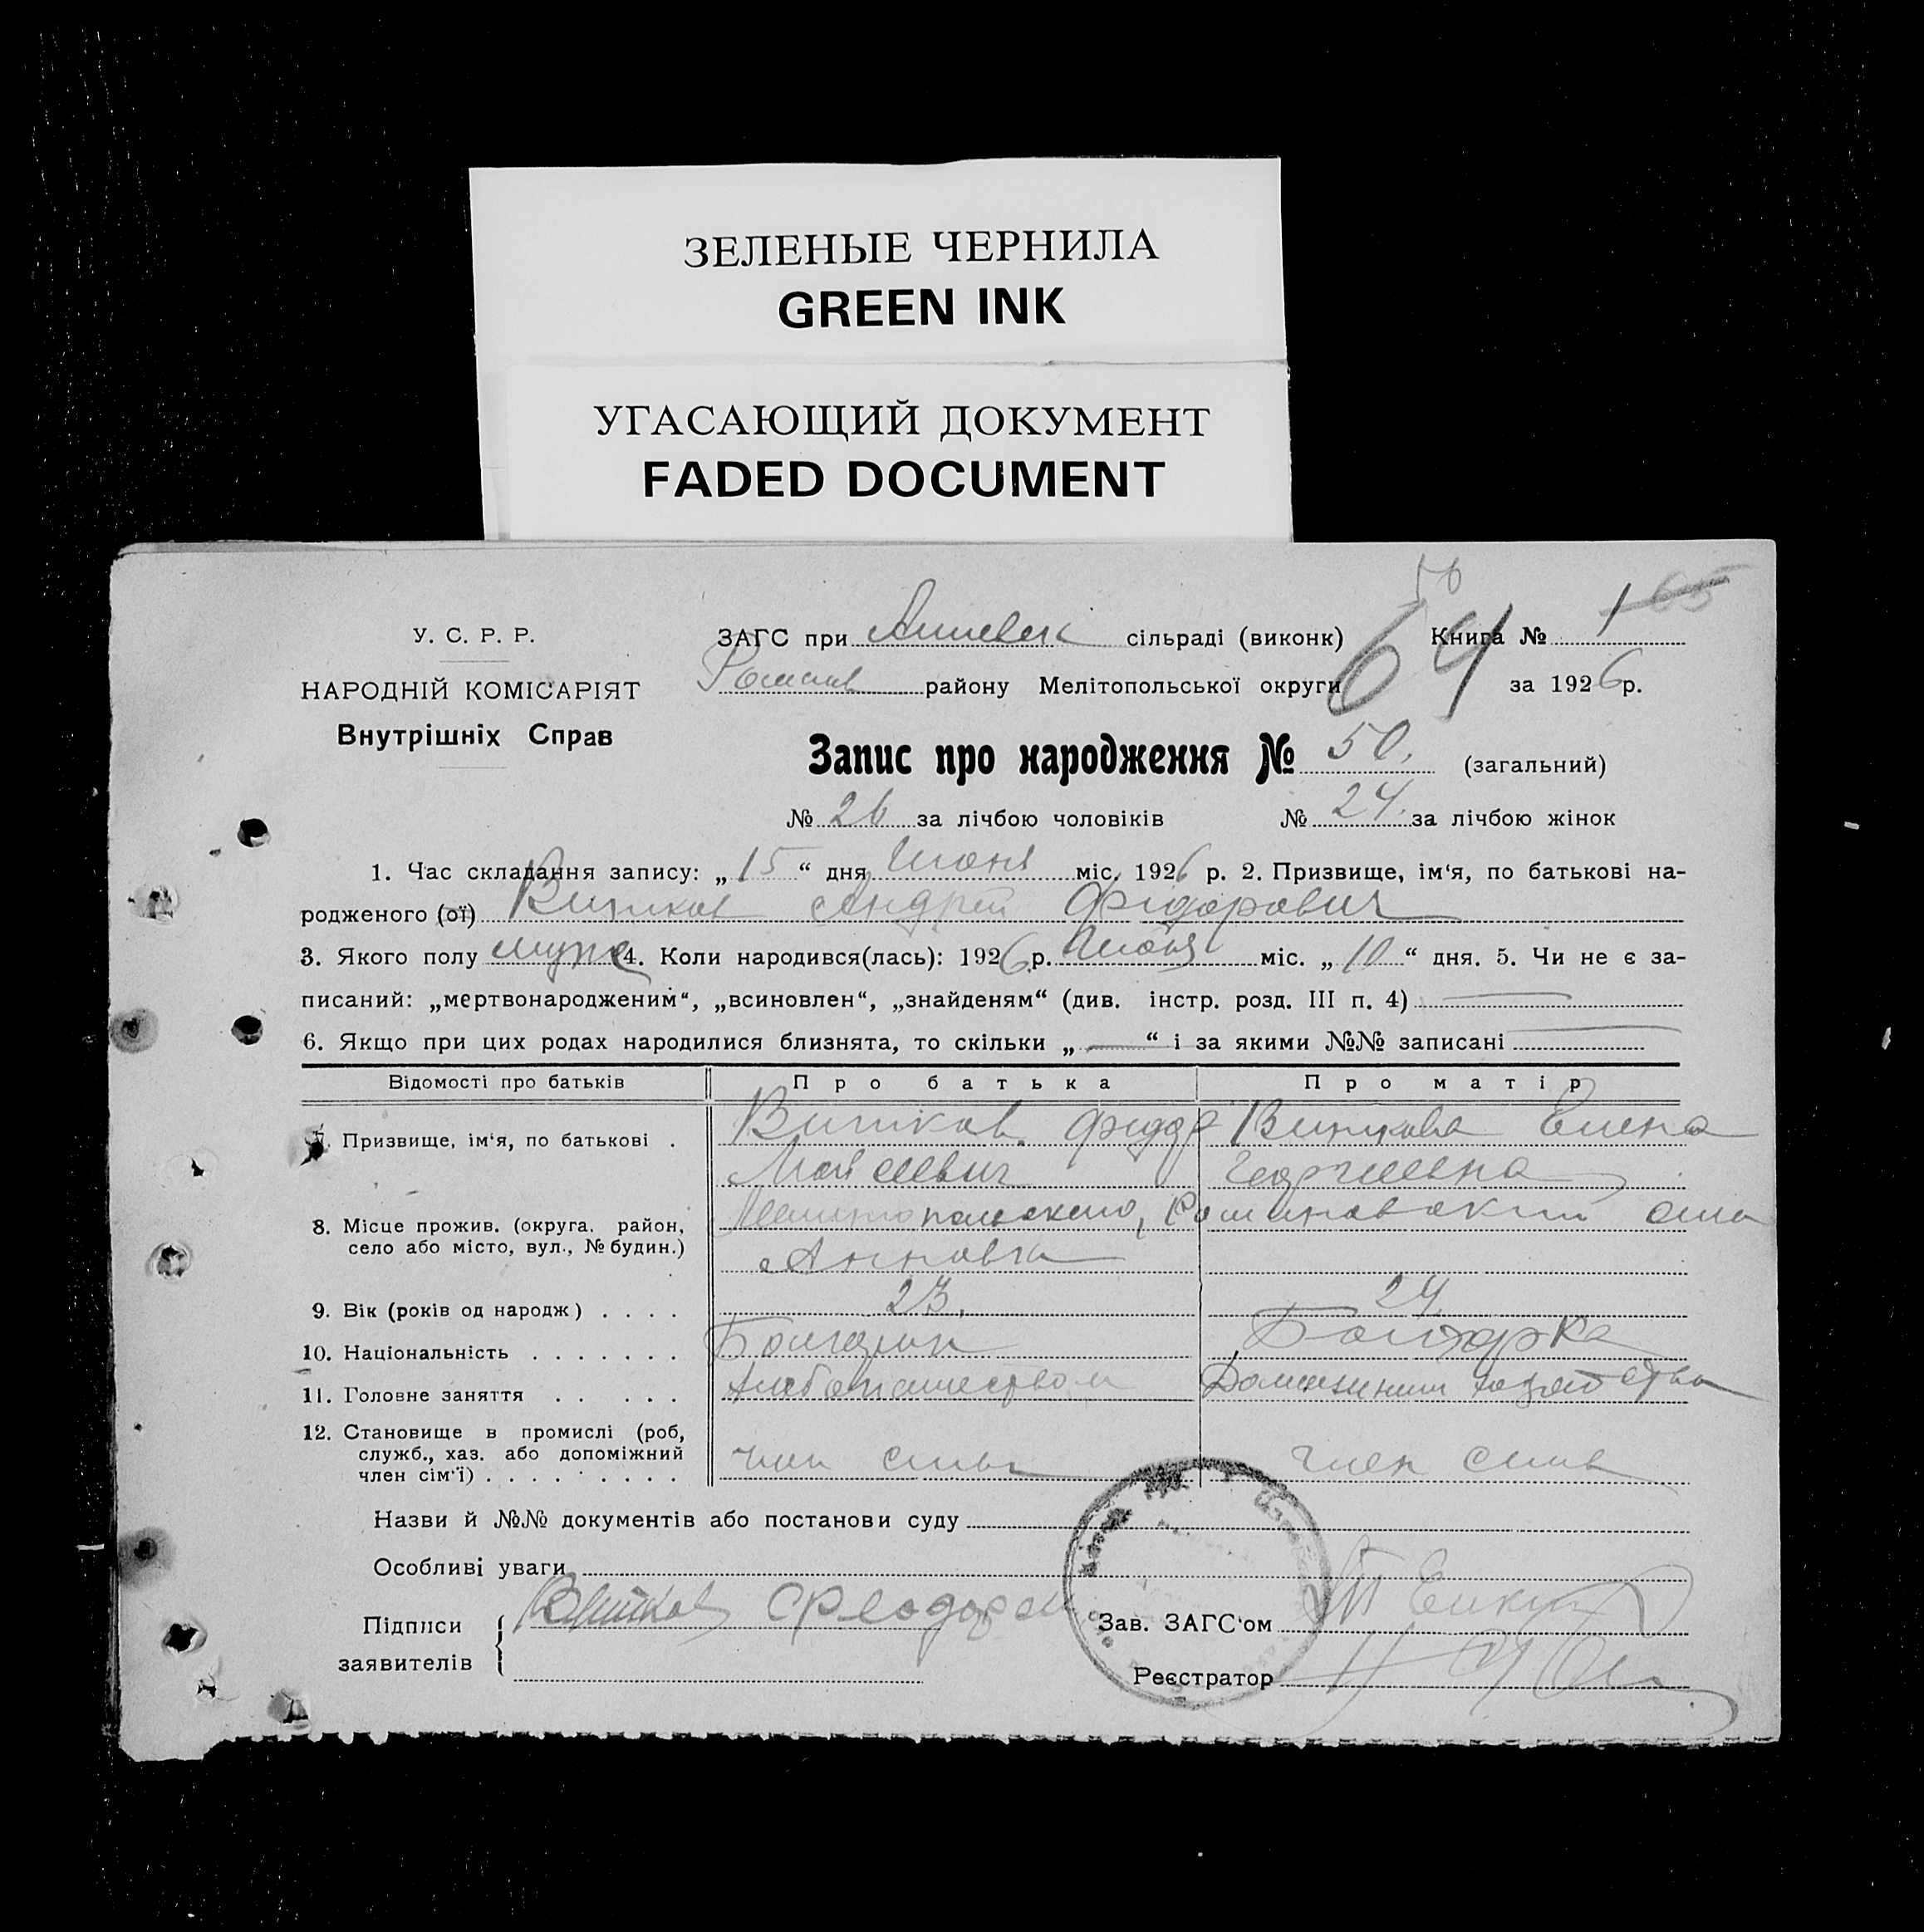 ЗЕЛЕНЫЕ ЧЕРНИЛА
GREEN INK
УГАСАЮЩИЙ ДОКУМЕНТ
FADED DOCUMENT
50
65
У. С. Р. Р.
ЗАГС при сільраді (виконк) Книга № 1
64
НАРОДНІЙ КОМІСАРІЯТ
району Мелітопольської округи за 1926 р.
Внутрішніх Справ
Запис про народження № 50. (загальний)
№ 26 за лічбою чоловіків № 24. за лічбою жінок
1. Час складання запису: „ 15 “ дня Июня міс. 1926 р. 2. Призвище, ім‘я, по батькові на-
родженого (ої) Витков Андрей Фідорович
3. Якого полу муже 4. Коли народився(лась): 1926 р. Июня міс. „ 10 “ дня. 5. Чи не є за-
писаний: „мертвонародженим“, „всиновлен“, „знайденям“ (див. інстр. розд. III п. 4)
6. Якщо при цих родах народилися близнята, то скільки „ — “ і за якими №№ записані
Відомості про батьків Про батька Про матір
7. Призвище, ім‘я, по батькові . Витков Фидор Виткова Елена
Георгиевна
8. Місце прожив. (округа, район, Мелитопольского, Романовский села
село або місто, вул., № будин.) Анновка
9. Вік (років од народж) . . . . 23. 24.
10. Національність . . . . . . . Болгарин Болгарка
11. Головне заняття . . . . . Хлебопашеством Домашним хозяйством
12. Становище в промислі (роб,
служб., хаз. або допоміжний
член сім‘ї) . . . . . . . . . член семьи член семьи
Назви й №№ документів або постанови суду
Особливі уваги
Підписи заявителів Витков Феодор
Зав. ЗАГС‘ом
Реєстратор